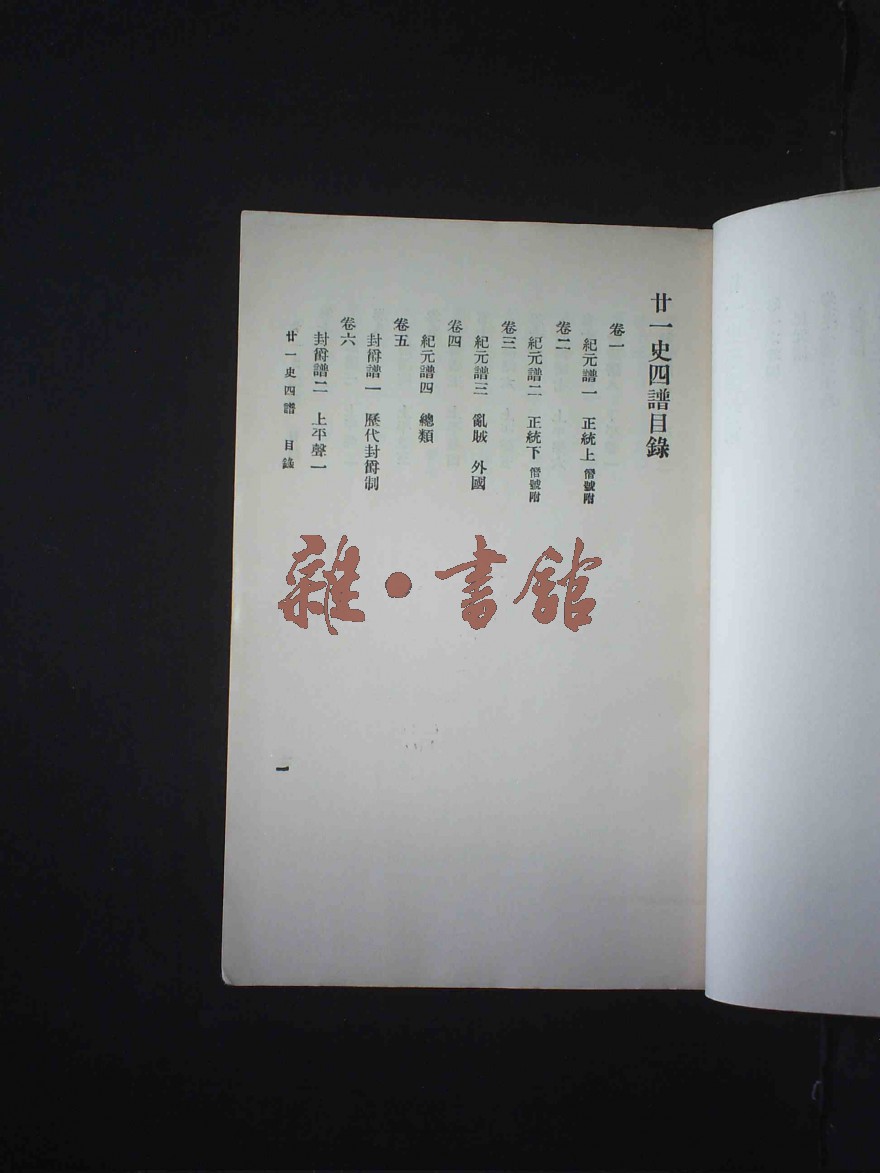 廿一史四譜目錄
卷一
紀元譜一 正統上 僭號附
卷二
紀元譜二 正統下 僭號附
卷三
紀元譜三 亂賊 外國
卷四
紀元譜四 總類
卷五
封爵譜一 歷代封爵制
卷六
封爵譜二 上平聲一
廿一史四譜 目錄
一
雜·書館